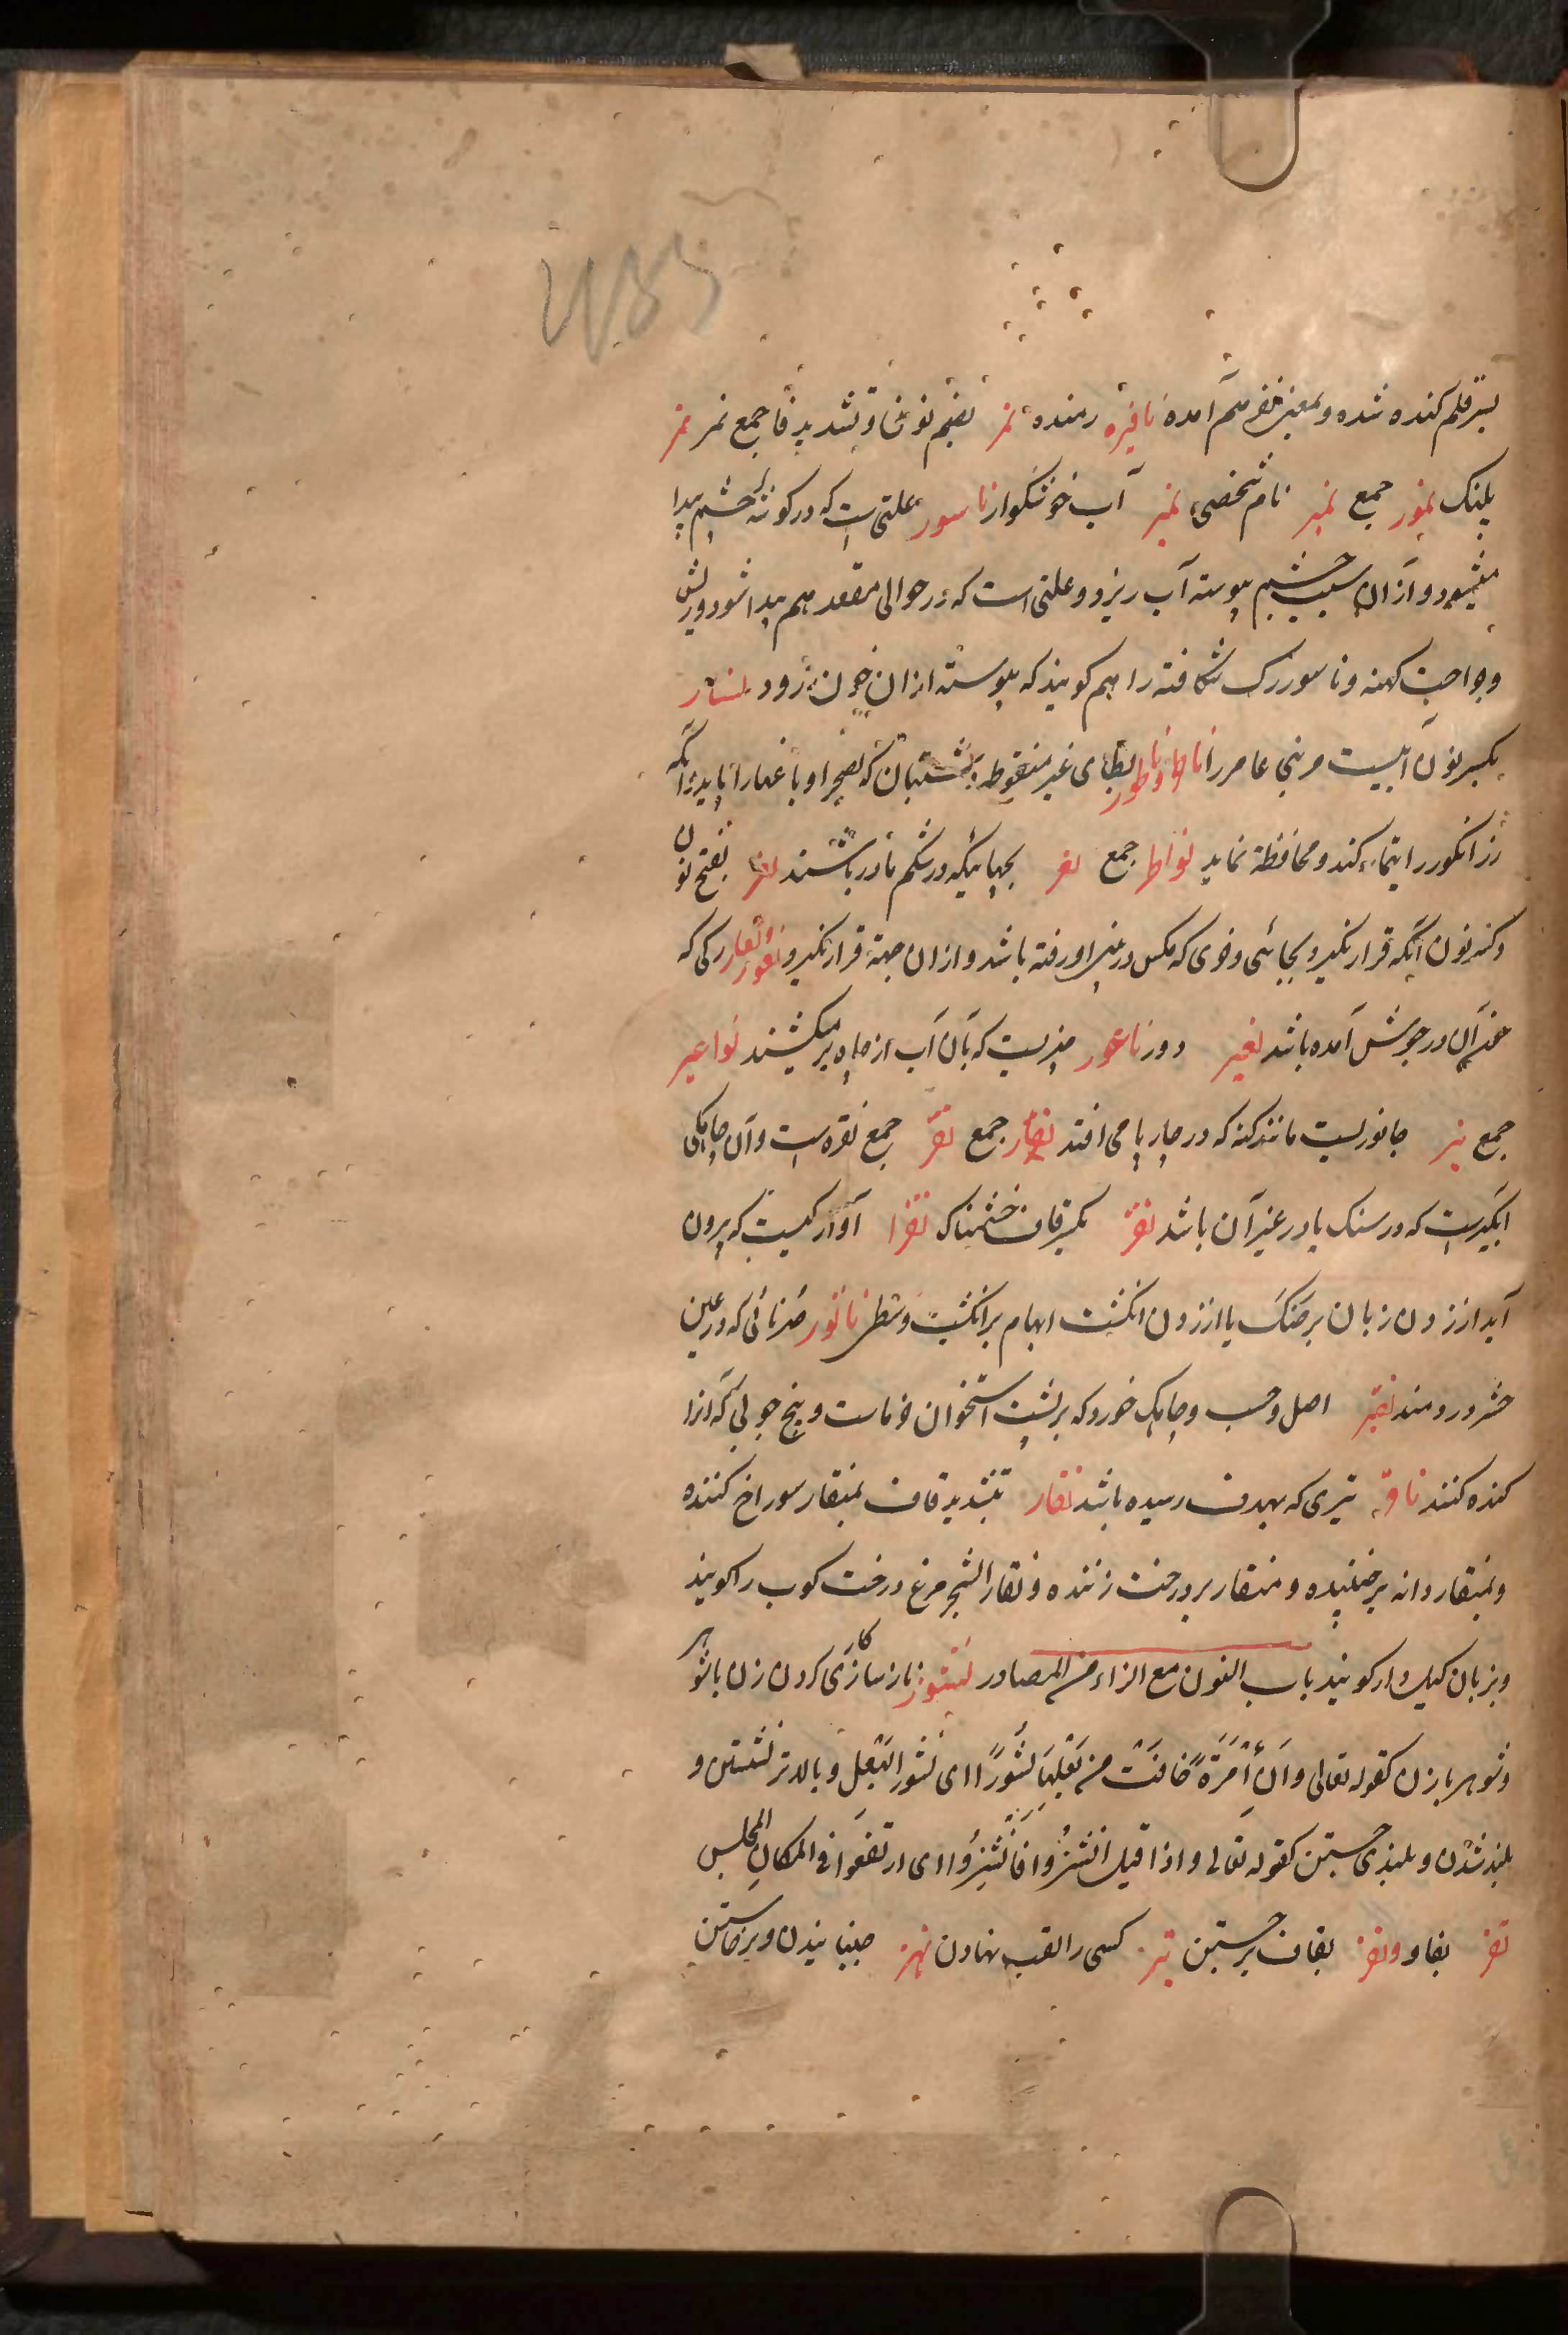 بسر قلم کنده شده و بمعنی نفر هم آمده نافره رمنده نمر بضم نون و تشدید فا جمع نمر نمر
پلنک نمور جمع نمیر نام شخصی نمیر آب خوشکوار ناسور علتی است که در کوشهٔ چشم پیدا
میشود و از آن سبب چشم پیوسته آب ریزد و علتی است که در حوالی مقعد هم پیدا شود و ریش
و جراحت کهنه و ناسور رک شکافته را هم کویند که پیوسته از ان خون رود نسار
بکسر نون آبیست مر بنی عامر را ناطر و ناطور بطای غیر منقوطه دشتبان که نضجر او باغها را باید آنکه
رز انکور را تیمار کند و محافظة نماید نواطر جمع نعر بچهائیکه در شکم مادر باشند نعر بفتح نون
و کسر نون آنکه قرار نکیرد بجائی و خری که مکس در بینی او رفته باشد و از ان جهة قرار نکیرد نعور و نعار رکی که
خون آن در جوش آمده باشد نعیر دور ناعور چیزیست که بآن آب از چاه برمیکشند نواعیر
جمع نبر جانوریست مانند کنه که در چارپا می افتد نقار جمع نقر جمع نقره است و آن چاهکی
ابکیریست که در سنک یا در غیر آن باشد نقر بکسر قاف خشمناک نقر ا آوازکیست که بیرون
آید از زدن زبان بر حنک یا از زدن انکشت ابهام بر انکشت وسطی ناقور صُرنائی که در عین
حشر در دمند نقیر اصل و حسب و چاهک خورد که بر پشت استخوان خرماست و بیخ چوبی که انرا
کنده کنند ناقر تیری که بهدف رسیده باشد نقار بتشدید قاف بمنقار سوراخ کننده
و بمنقار دانه برچیننده و منقار بر درخت زننده و نقار الشجر مرغ درخت کوب را کویند
و بزبان کیلک دارکو نیند باب النون مع الزاء من المصادر نشوز ناسازکاری کردن زن با شوهر
و شوهر با زن کقوله تعالی و ان امرأة خافت من بعلها نشورًا ای نشور البعل و بالاتر نشستن و
بلند شدن و بلندی جستن کقوله تعالی و اذا قیل انشزوا فانشزوا ای ارتفعوا فی المکان المجلس
نفز بفا و ونقز بقاف برجستن نبز کسی را لقب نهادن نهز جنبانیدن و برخاستن